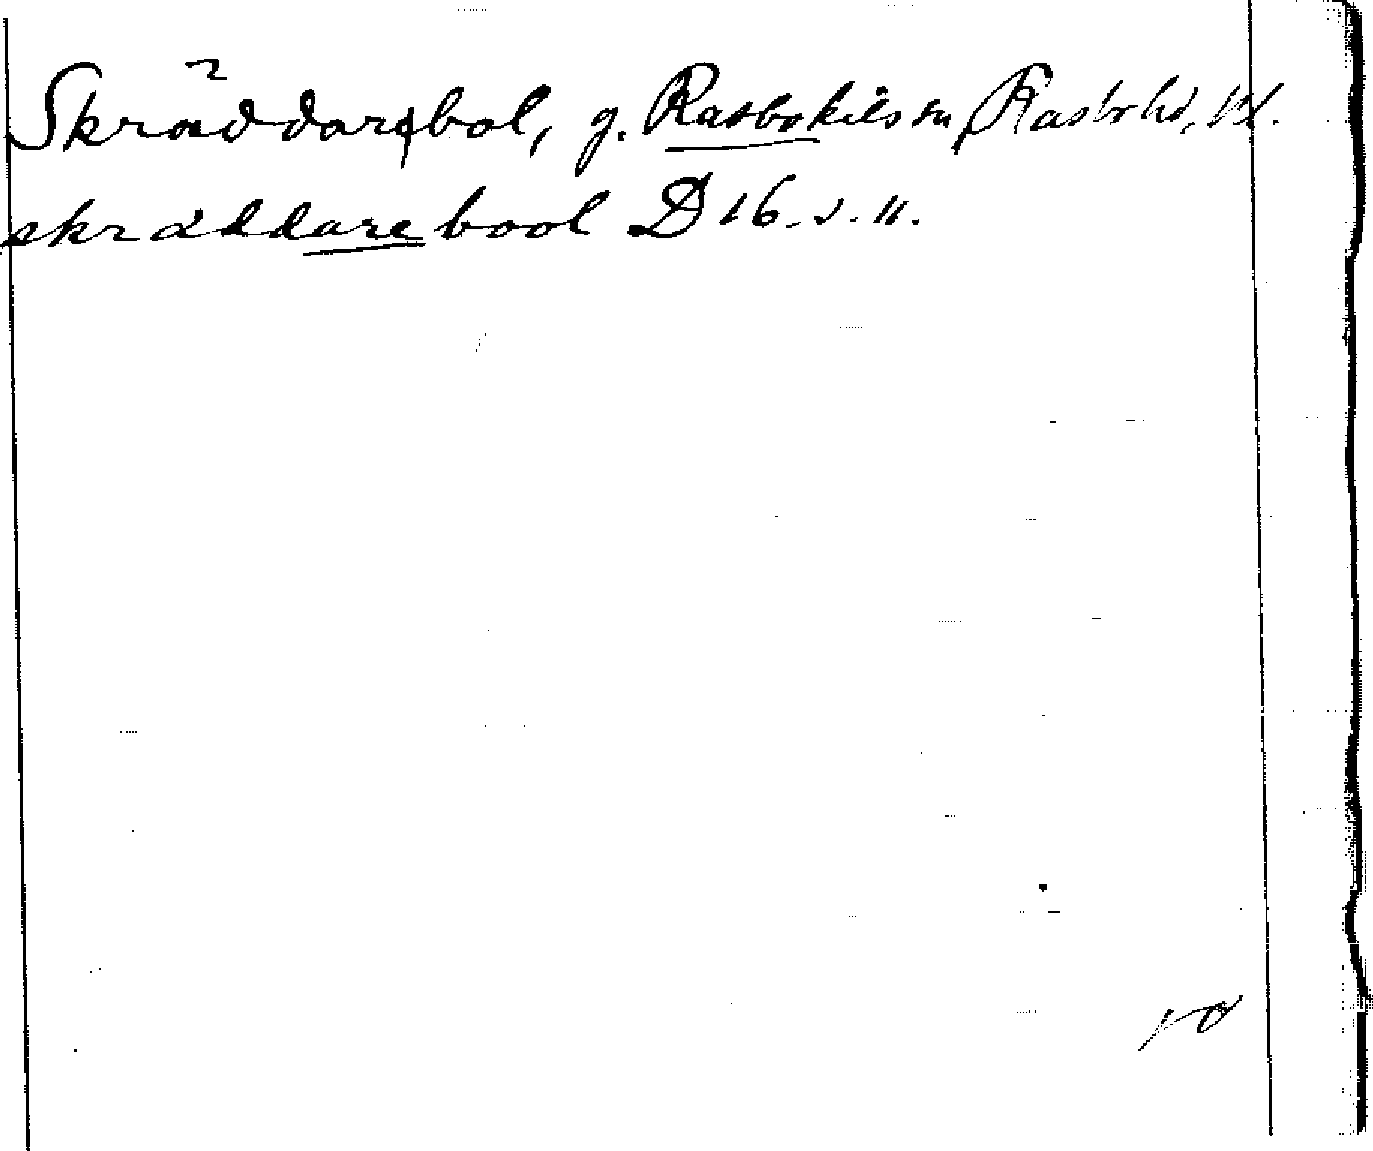 Skräddarebol, g. Rasbokils sn, Rasbo hd, Upl.
skräddarebool D 16. 2. 11.